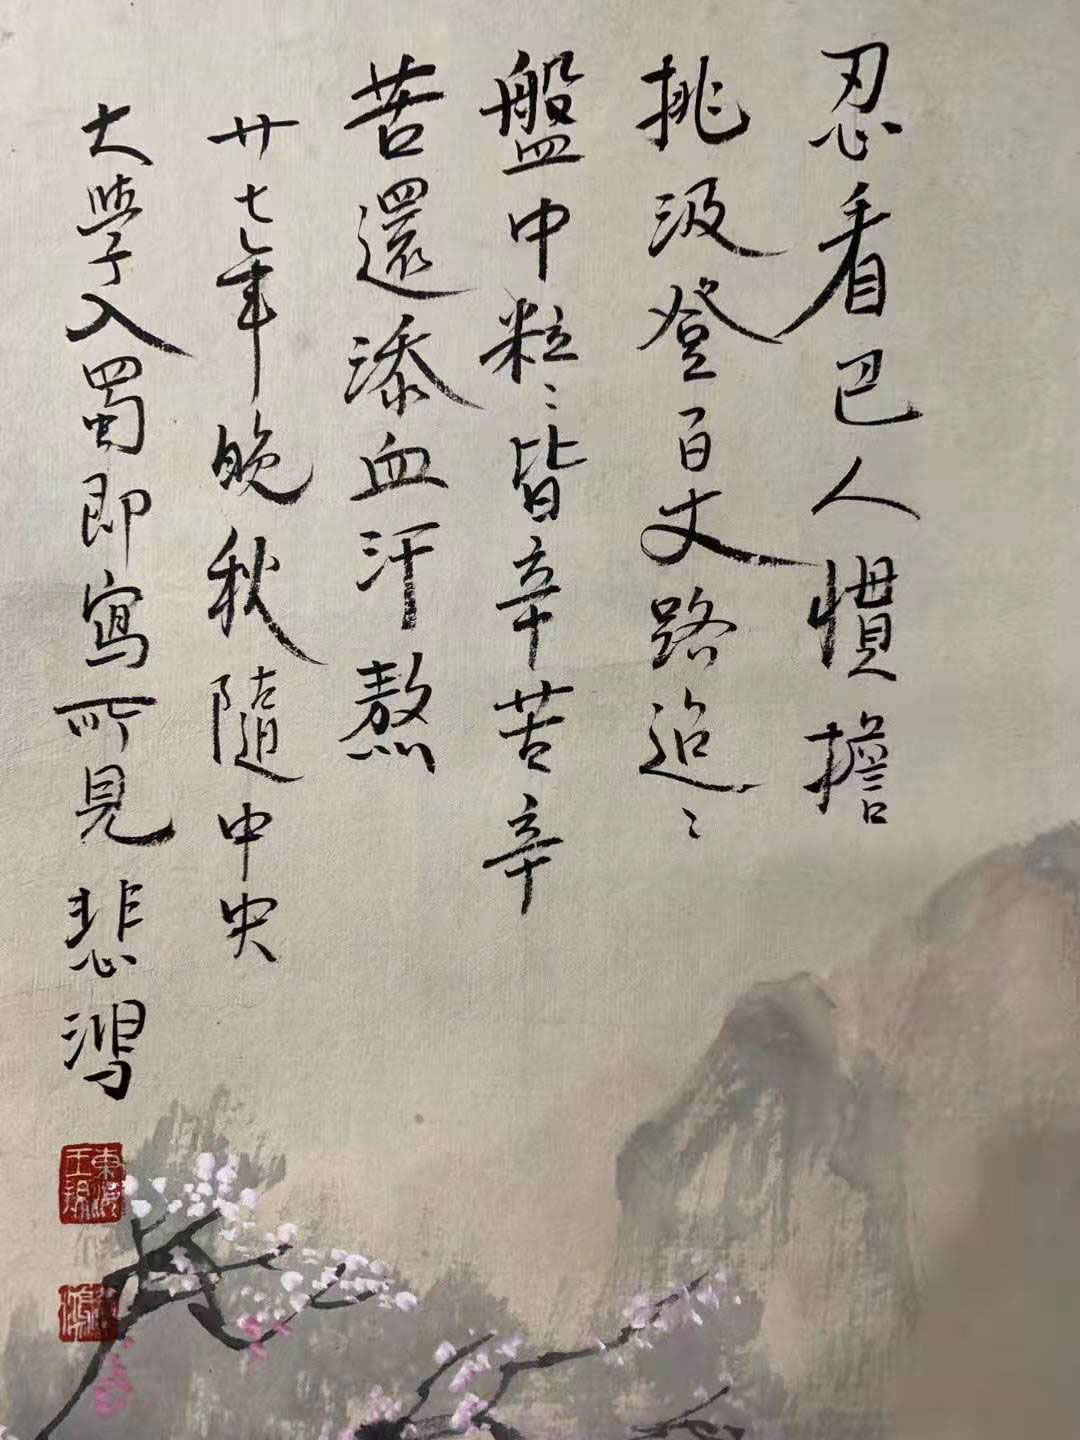 忍看巴人慣擔
挑汲登百丈路迢〻
盤中粒〻皆辛苦辛
苦還添血汗熬
廿七年晚秋隨中央
大學入蜀即寫所見 悲鴻